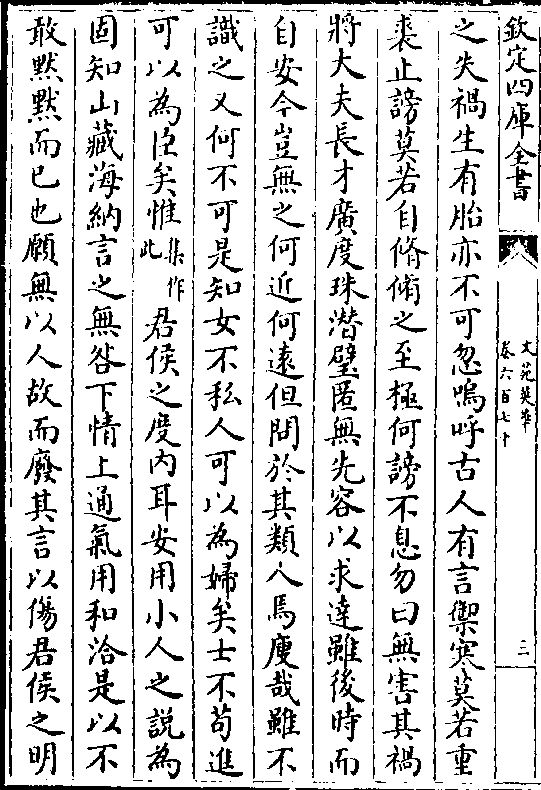 欽定四庫全書
文苑英華
卷六百七十
三
之失禍生有胎亦不可忽嗚呼古人有言禦寒莫若重
裘止謗莫若自脩脩之至極何謗不息勿曰無害其禍
將大夫長才廣度珠潛璧匿無先容以求達雖後時而
自安今豈無之何近何遠但問於其類人焉廋哉雖不
識之又何不可是知女不私人可以為婦矣士不苟進
可以為臣矣惟集作此君侯之度内耳安用小人之説為
固知山藏海納言之無咎下情上通氣用和洽是以不
敢黙黙而已也願無以人故而廢其言以傷君侯之明